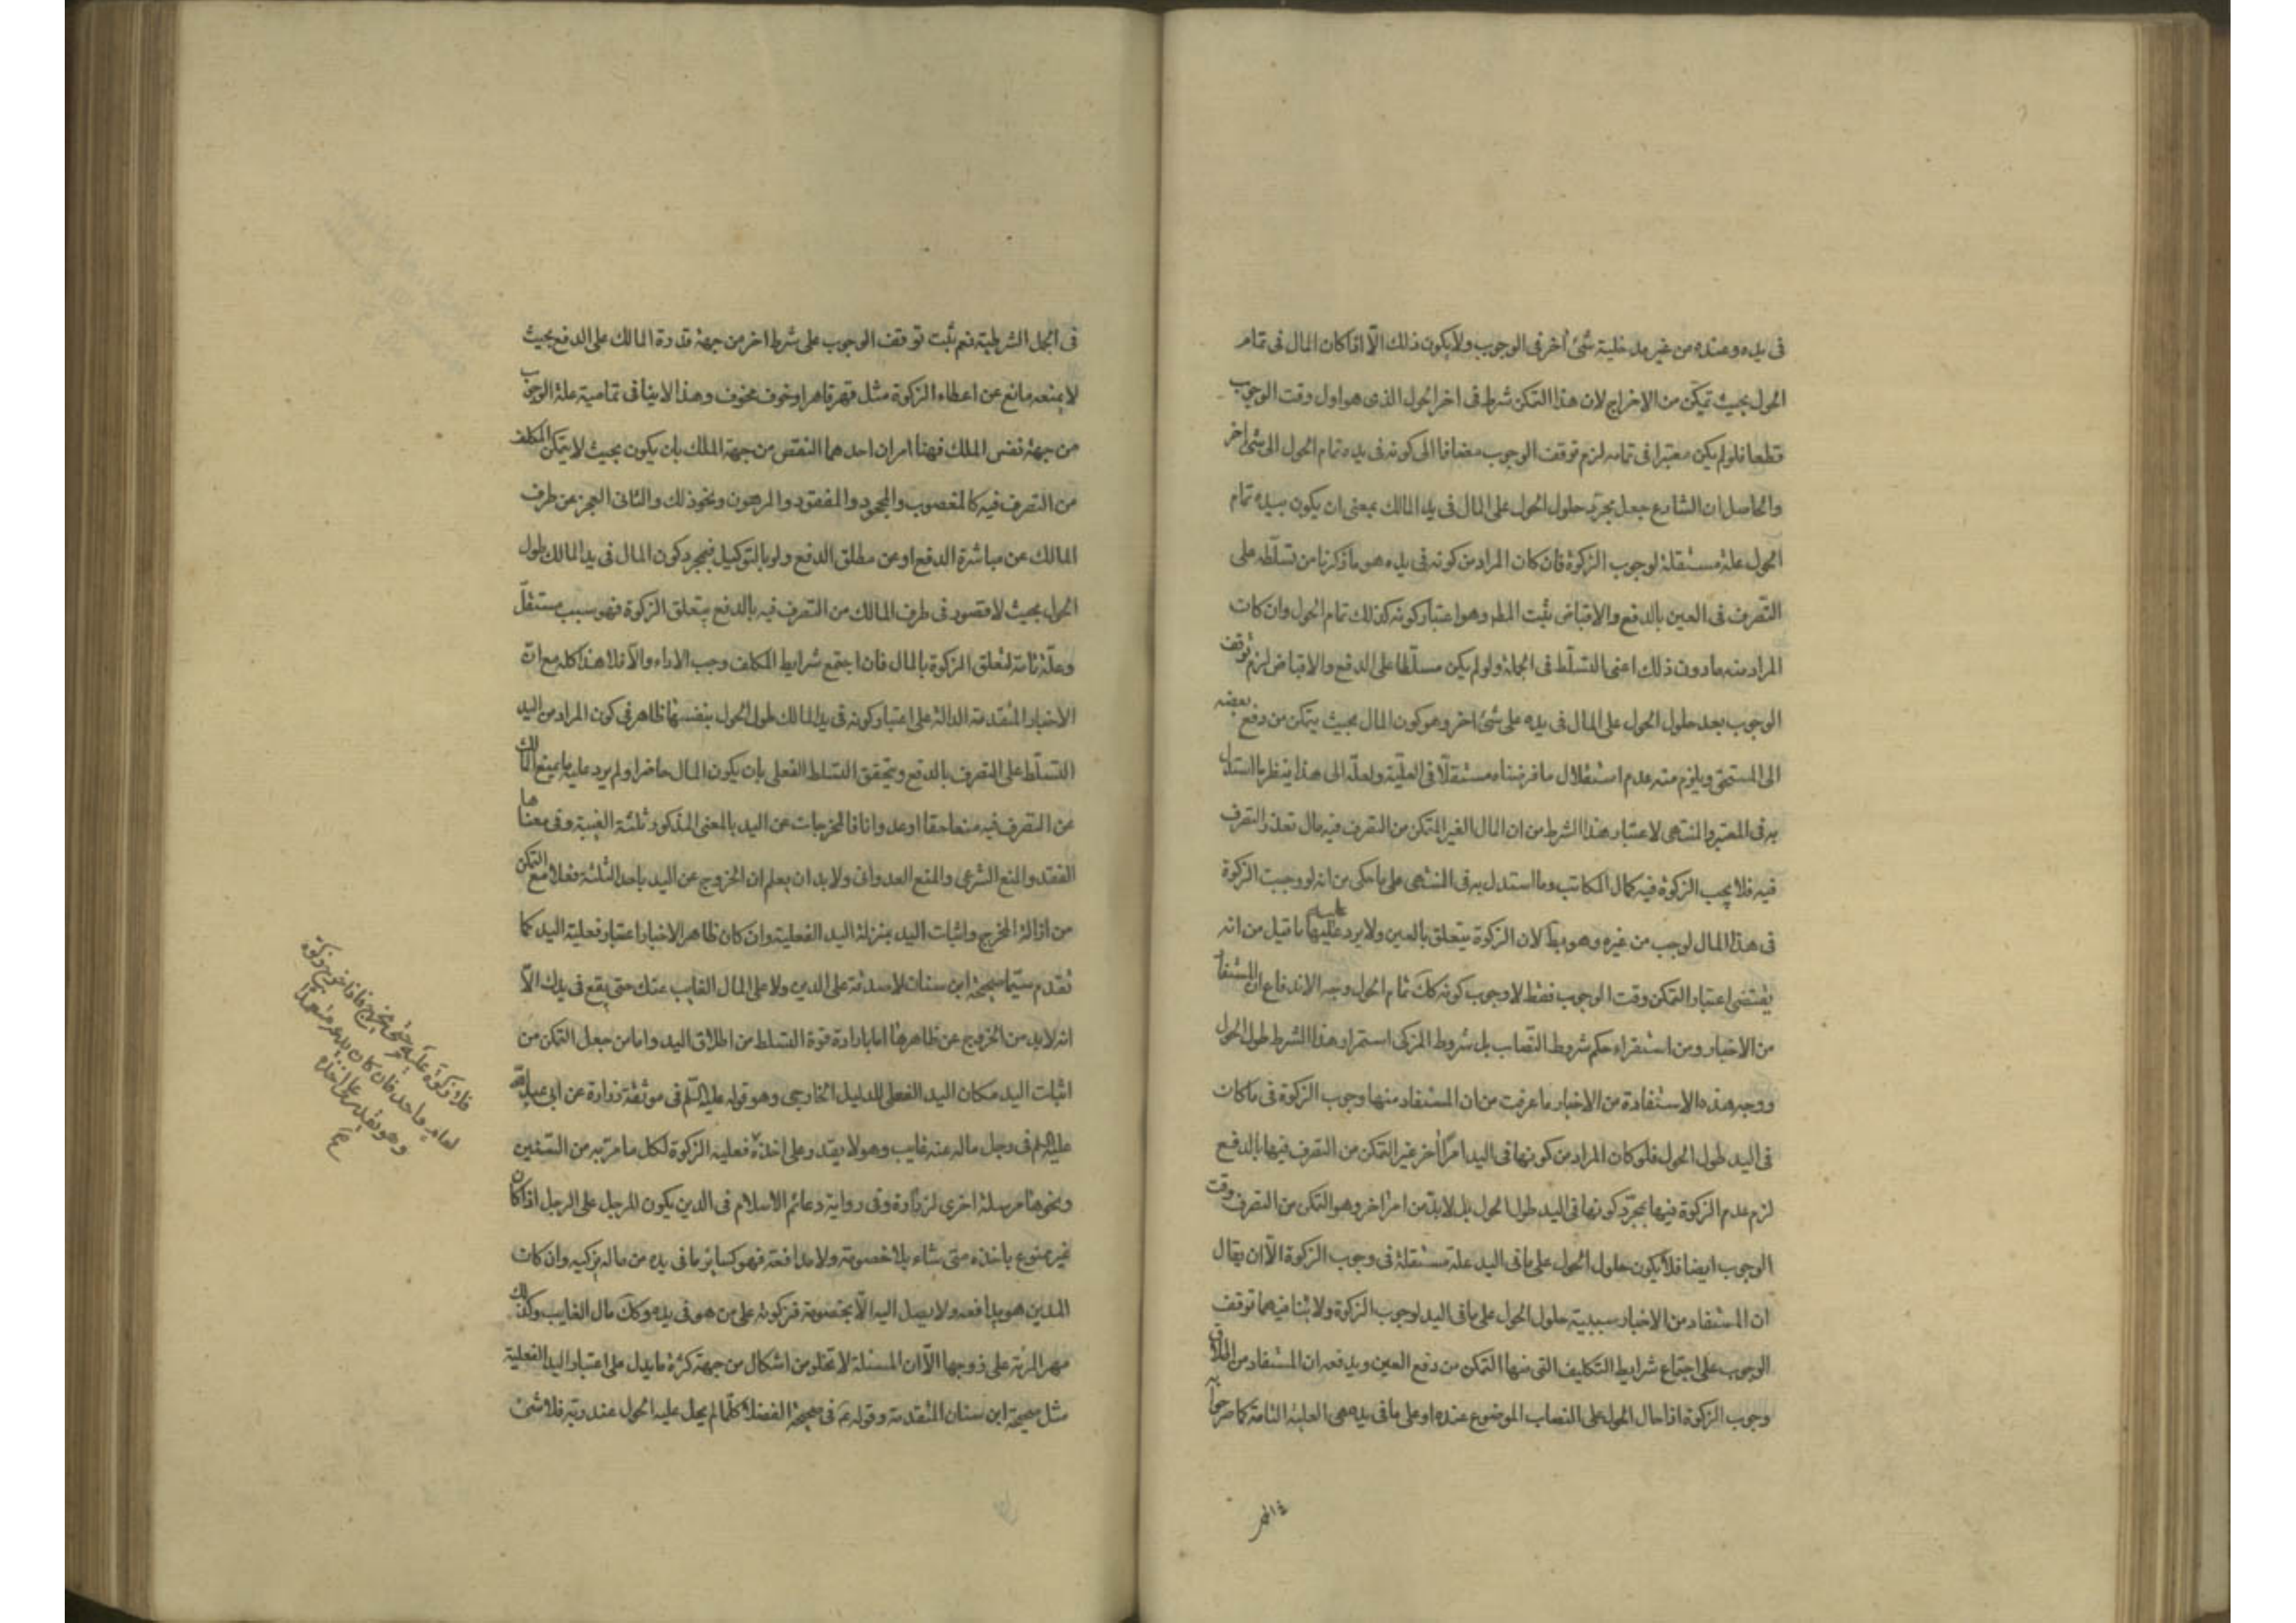 فى يده وعنده من غير مدخلية شئ آخر فى الوجوب ولا يكون ذلك الّا اذا كان المال فى تمام
الحول بحيث يتمكّن من الاخراج لان هذا التمكن شرط فى اخر الحول الذى هو اول وقت الوجوب
قطعا فلو لم يكن معتبرا فى تمامه لزم توقف الوجوب مضافا الى كونه فى يده تمام الحول الى شئ اخر
والحاصل ان الشارع جعل مجرّد حلول الحول على المال فى يد المالك بمعنى ان يكون بيده تمام
الحول علة مستقلة لوجوب الزكوة فان كان المراد من كونه فى يده هو ما ذكرنا من تسلّطه على
التصّرف فى العين بالدفع والاقباض يثبت المط وهو اعتبار كونه كذلك تمام الحول وان كان
المراد منه ما دون ذلك اعنى التسلّط فى الجملة ولو لم يكن مسلّطا على الدفع والاقباض لزم توقف
الوجوب بعد حلول الحول على المال فى يده على شئ اخر وهو كون المال بحيث يتمكن من دفع بعضه
الى المستحق ويلزم منه عدم استقلال ما فرضناه مستقلّا فى العليّة ولعلّه الى هذا ينظر ما استدل
به فى المعتبر والمنتهى لاعتبار هذا الشرط من ان المال الغير المتمكن من التصرف فيه مال تعذر التصرف
فيه فلا يجب الزكوة فيه كمال المكاتب وما استدل به فى المنتهى على ما حكى من انه لو وجبت الزكوة
فى هذا المال لوجب من غيره وهو بط لان الزكوة يتعلق بالعين ولا يرد عليهما ما قيل من انه
يقتضى اعتبار التمكن وقت الوجوب فقط لا وجوب كونه كك تمام الحول وجه الاندفاع ان المستفاد
من الاخبار ومن استقراء حكم شروط النصاب بل شروط المزكى استمرار هذا الشرط طول الحول
ووجه هذه الاستفادة من الاخبار ما عرفت من ان المستفاد منها وجوب الزكوة فى ما كان
فى اليد طول الحول فلو كان المراد من كونها فى اليد امرًا آخر غير التمكن من التصرف فيها بالدفع
لزم عدم الزكوة فيها بمجرّد كونها فى اليد طول الحول بل لابدّ من امر اخر وهو التمكن من التصرف وقت
الوجوب ايضا فلا يكون حلول الحول على ما فى اليد علة مستقلة فى وجوب الزكوة الّا ان يقال
ان المستفاد من الاخبار سببية حلول الحول على ما فى اليد لوجوب الزكوة ولا ينافيها توقف
الوجوب على اجتماع شرايط التكليف التى منها التمكن من دفع العين ويدفعه ان المستفاد من
وجوب الزكوة اذا حال الحول على النصاب الموضوع عنده او على ما فى يده هى العلية التامة كما صرحوا به
فى الجمل الشرطية نعم ثبت توقف الوجوب على شرط اخر من جهة قدرة المالك على الدفع بحيث
لا يمنعه مانع عن اعطاء الزكوة مثل قهر قاهر او خوف مخوف وهذا لا ينافى تمامية علة الوجوب
من جهة نفس الملك فهنا امران احدهما النقص من جهة الملك بان يكون بحيث لا يتمكن المكلف
من التصرف فيه كالمغصوب والمجحود والمفقود والمرهون ونحو ذلك والثانى العجز من طرف
المالك عن مباشرة الدفع او عن مطلق الدفع ولو بالتوكيل فبمجرد كون المال فى يد المالك طول
الحول بحيث لا قصور فى طرف المالك من التصرف فيه بالدفع يتعلق الزكوة فهو سبب مستقلّ
وعلّة تامة لتعلق الزكوة بالمال فان اجتمع شرايط المكلف وجب الاداء والّا فلا هذا كله مع انّ
الاخبار المتقدمة الدالة على اعتبار كونه فى يد المالك طول الحول بنفسها ظاهر فى كون المراد من اليد
التسلّط على التصرف بالدفع ويتحقق التسلط الفعلى بان يكون المال حاضرا ولم يرد عليه ما يمنع المالك
من التصرف فيه منعا حقا او عدوانا فالمخرجات عن اليد بالمعنى المذكور ثلثة الغيبة وفى معناها
الفقد والمنع الشرعى والمنع العدوانى ولابد ان يعلم ان الخروج عن اليد باحد الثلثة فعلا مع التمكن
من ازالة المخرج واثبات اليد بمنزلة اليد الفعلية وان كان ظاهر الاخبار اعتبار فعلية اليد كما
تقدم سيّما صحيحة ابن سنان لا صدقة على الدين ولا على المال الغايب عنك حتى يقع فى يدك الّا
انه لابد من الخروج عن ظاهرها اما بارادة قوة التسلط من اطلاق اليد واما من جعل التمكن من
اثبات اليد مكان اليد الفعلى للدليل الخارجى وهو قوله عليه السّلم فى موثقة زرارة عن ابى عبد الله
عليه السلم فى رجل ماله عنه غايب وهو لا يقدر على اخذه فعليه الزكوة لكل ما مرّ به من السّنين
ونحوها مرسلة اخرى لزرارة وفى رواية دعائم الاسلام فى الدين يكون للرجل على الرجل اذا كان
غير ممنوع ياخذه متى شاء بلا خصومة ولا مدافعة فهو كساير ما فى يده من ماله يزكيه وان كان
المدين هو يدافعه ولا يصل اليه الّا بخصومة فزكوته على من هو فى يده وكك مال الغايب وكذلك
مهر المرئة على زوجها الّا ان المسئلة لا تخلو من اشكال من جهة كثرة ما يدل على اعتبار اليد الفعلية
مثل صحيحة ابن سنان المتقدمة وقوله ع فى صحيحة الفضلاء كلّما لم يحل عليه الحول عند ربّه فلا شئ
فلا زكوة عليه حتى يخرج فاذا خرج زكوة
لعام واحد فان كان يدعه متعمدا
وهو يقدر على اخذه
صح